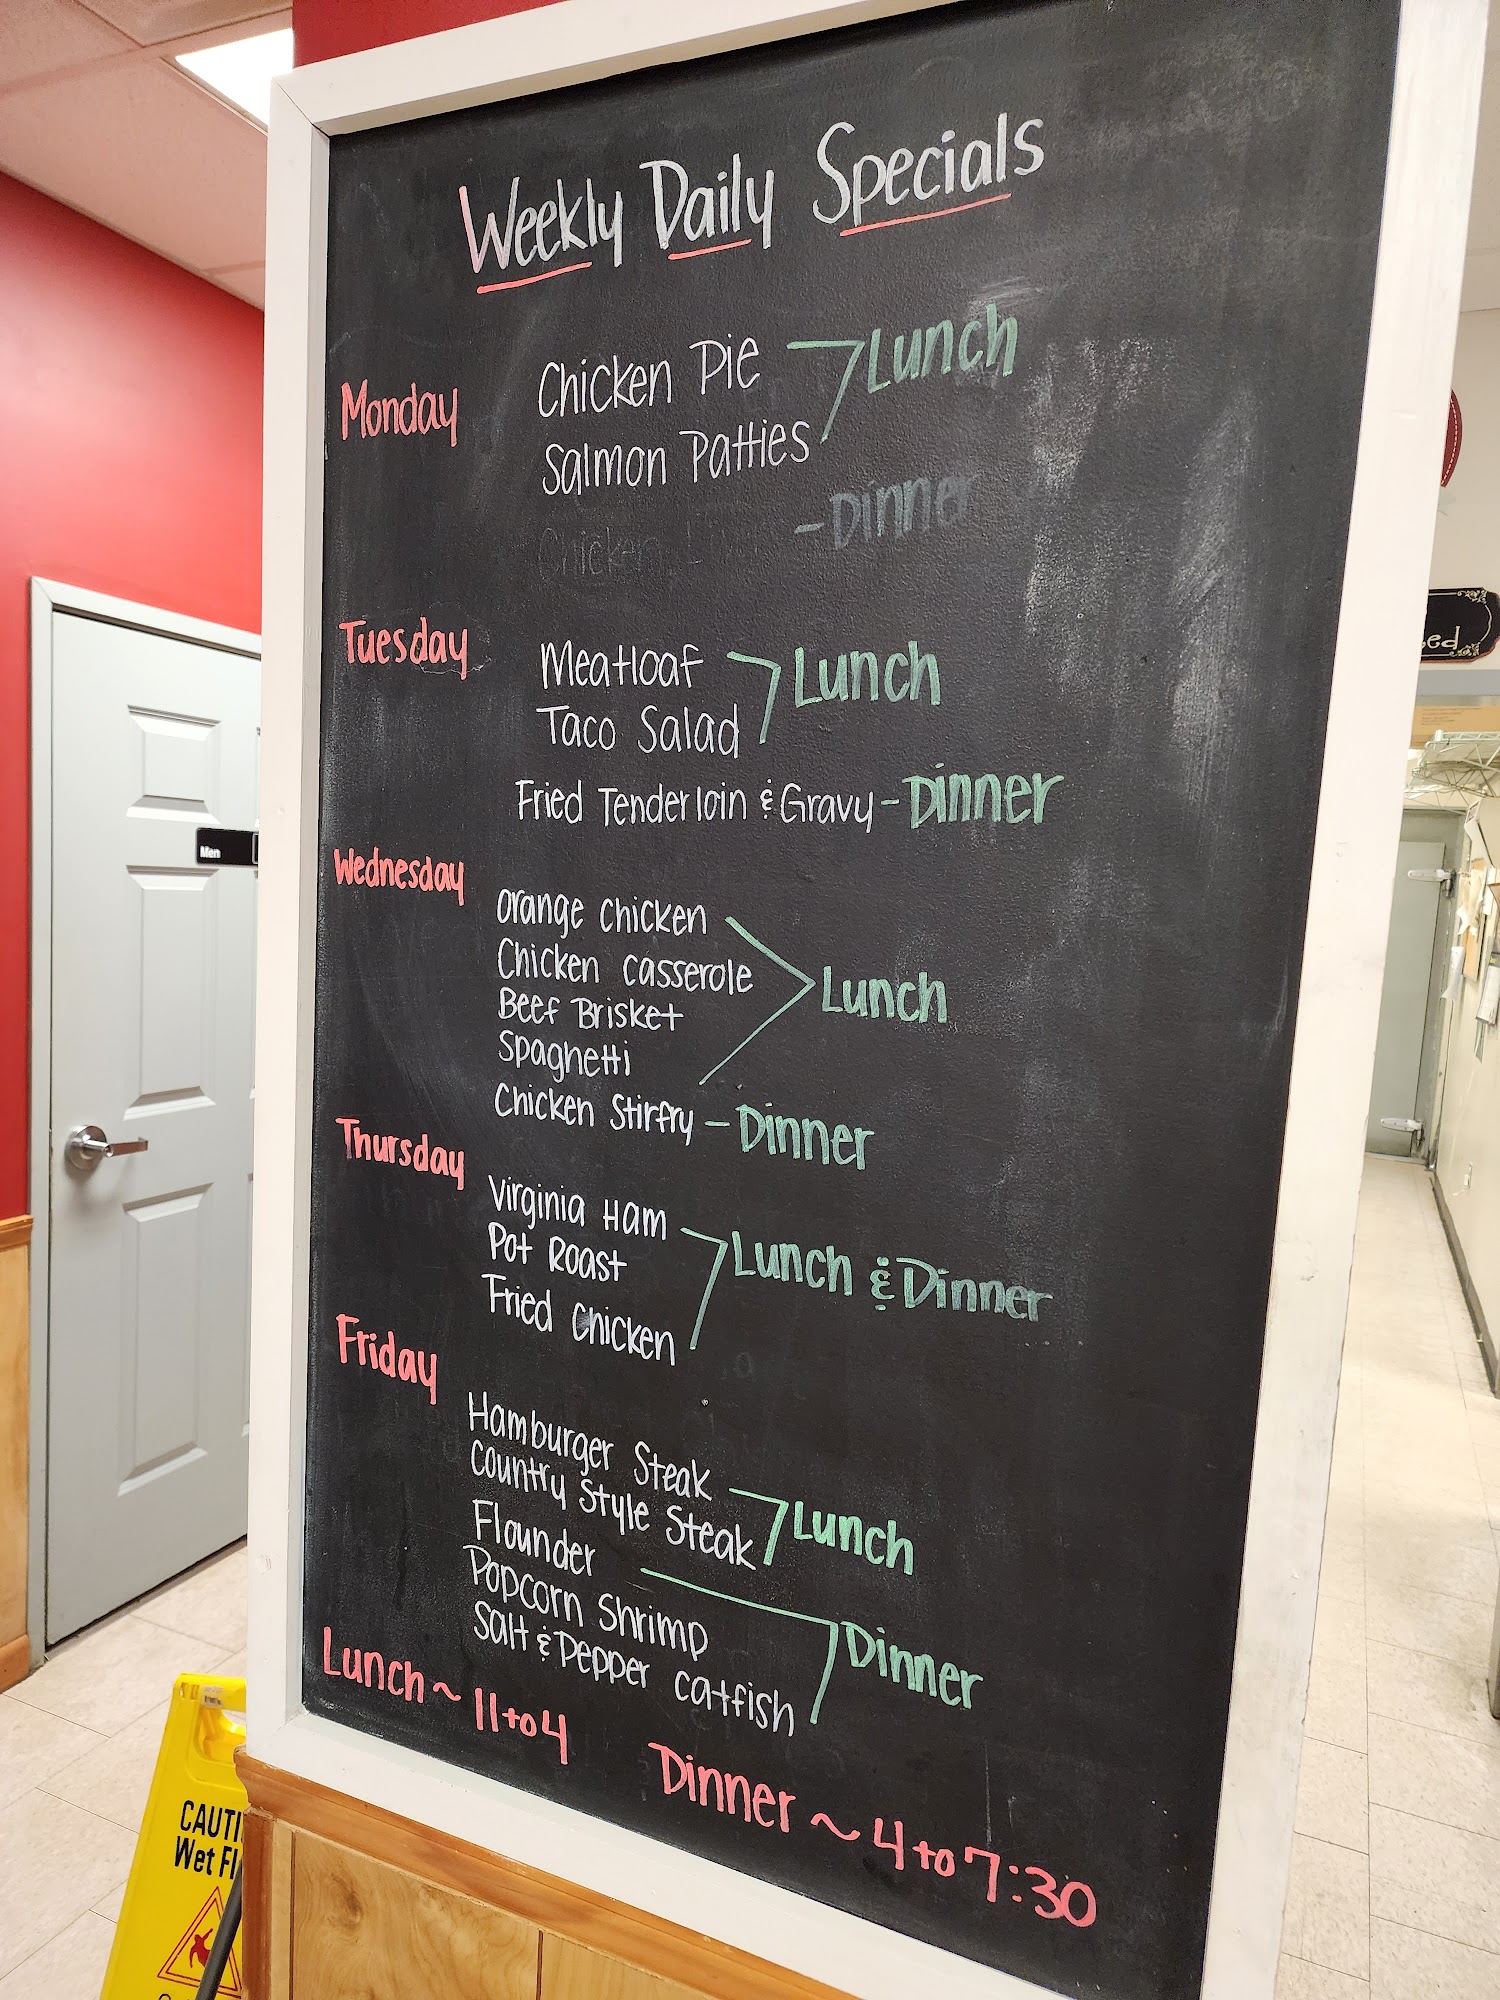 Weekly Daily Specials
Monday
Chicken Pie
Salmon Patties
Lunch
Chicken
- Dinner
Tuesday
Meatloaf
Taco Salad
Lunch
Fried Tenderloin & Gravy - Dinner
Wednesday
Orange Chicken
Chicken Casserole
Beef Brisket
Spaghetti
Lunch
Chicken Stirfry - Dinner
Thursday
Virginia Ham
Pot Roast
Fried Chicken
Lunch & Dinner
Friday
Hamburger Steak
Country Style Steak
Lunch
Flounder
Popcorn Shrimp
Salt & Pepper Catfish
Dinner
Lunch ~ 11 to 4
Dinner ~ 4 to 7:30
Men
CAUTI
Wet Fl